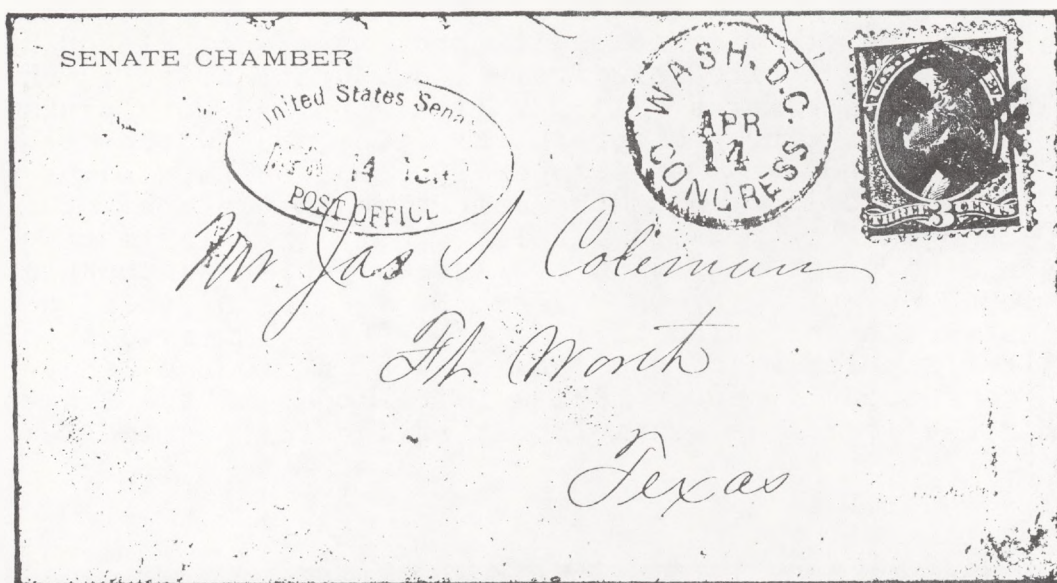 SENATE CHAMBER
United States Sena
14
POST OFFICE
WASH. D.C.
APR
14
CONGRESS
THREE 3 CENTS
Mr. Jas S. Coleman
Ft. Worth
Texas